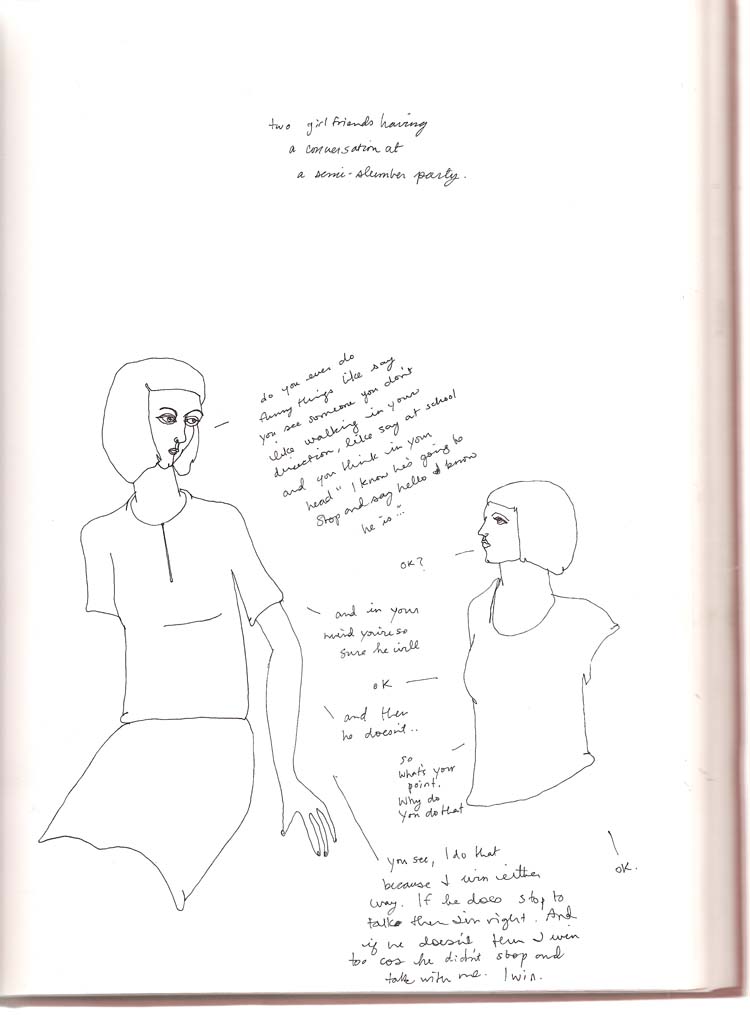 two girlfriends having
a conversation at
a semi-slumber party.
do you ever do
funny things like say
you see someone you don't
like walking in your
direction, like say at school
and you think in your
head "I know he's going to
stop and say hello I know
he is"...
OK?
and in your
mind you're so
sure he will
OK
and then
he doesn't..
so
what's your
point.
Why do
you do that
you see, I do that
because I win either
way. If he does stop to
talk then I'm right. And
if he doesn't then I win
too cos he didn't stop and
talk with me. I win.
OK.